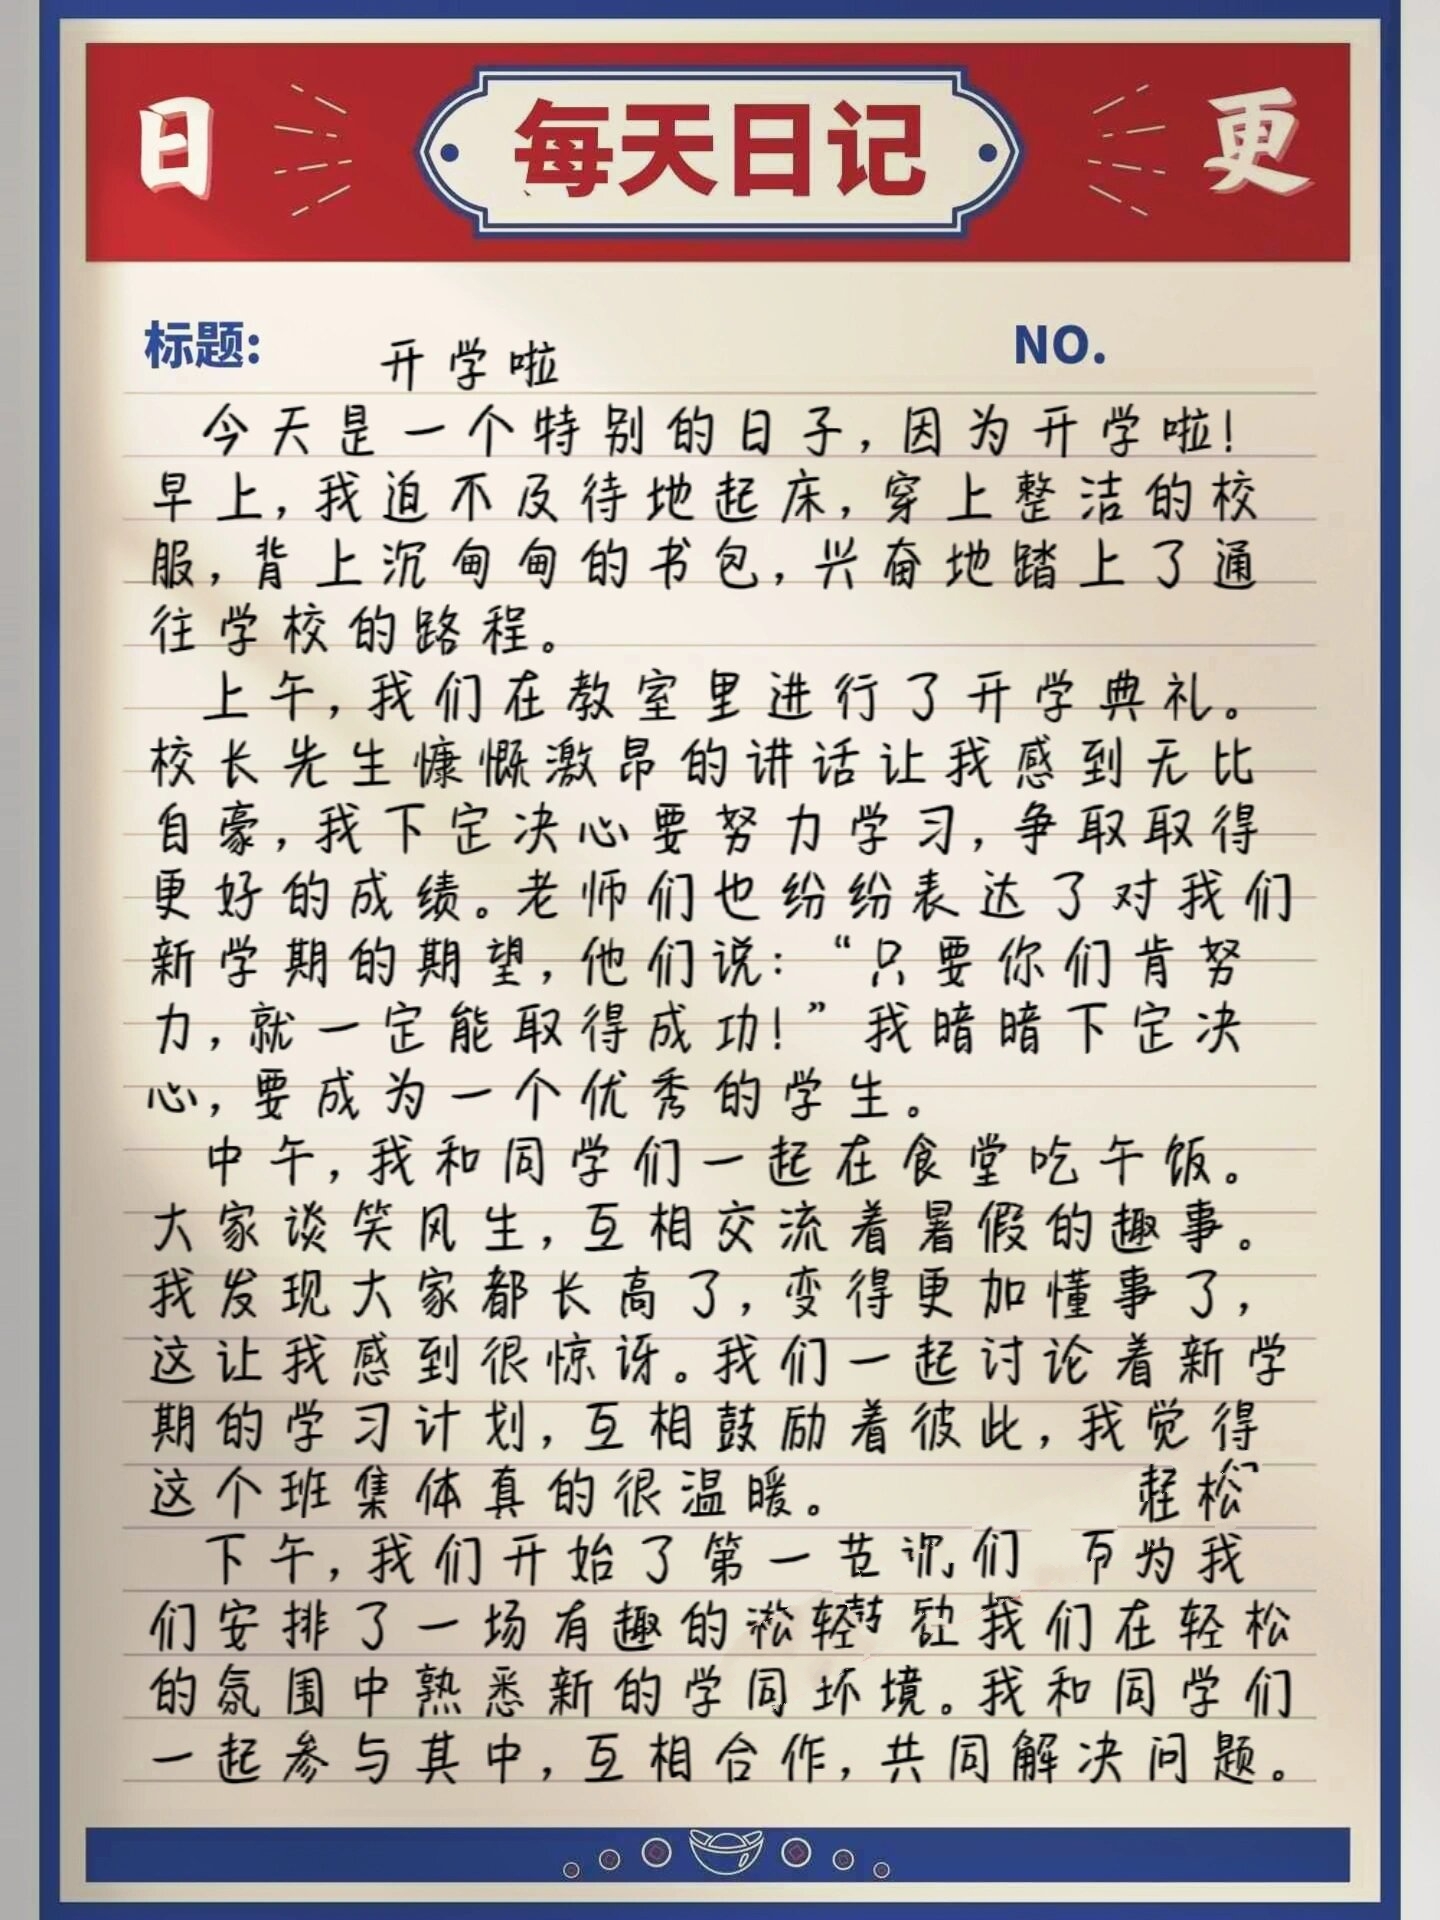 日 每天日记 更
标题: 开学啦 NO.
今天是一个特别的日子,因为开学啦!
早上,我迫不及待地起床,穿上整洁的校
服,背上沉甸甸的书包,兴奋地踏上了通
往学校的路程。
上午,我们在教室里进行了开学典礼。
校长先生慷慨激昂的讲话让我感到无比
自豪,我下定决心要努力学习,争取取得
更好的成绩。老师们也纷纷表达了对我们
新学期的期望,他们说:“只要你们肯努
力,就一定能取得成功!”我暗暗下定决
心,要成为一个优秀的学生。
中午,我和同学们一起在食堂吃午饭。
大家谈笑风生,互相交流着暑假的趣事。
我发现大家都长高了,变得更加懂事了,
这让我感到很惊讶。我们一起讨论着新学
期的学习计划,互相鼓励着彼此,我觉得
这个班集体真的很温暖。 松
下午,我们开始了第一节 们 为我
们安排了一场有趣的 我们在轻松
的氛围中熟悉新的学 环境。我和同学们
一起参与其中,互相合作,共同解决问题。